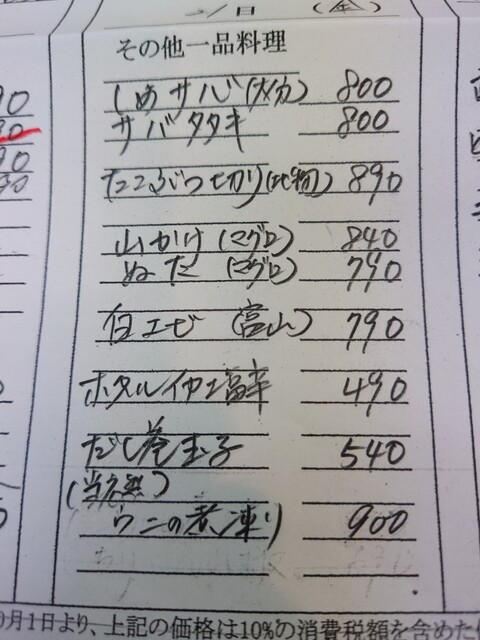 日 (金)
その他一品料理
しめサバ(大分) 800
サバタタキ 800
たこぶつ切り(北物) 890
山かけ(マグロ) 840
ぬた(マグロ) 790
白エビ(富山) 790
ホタルイカ 490
だし巻玉子 540
ウニの煮凍り 900
0月1日より、上記の価格は10%の消費税額を含めた